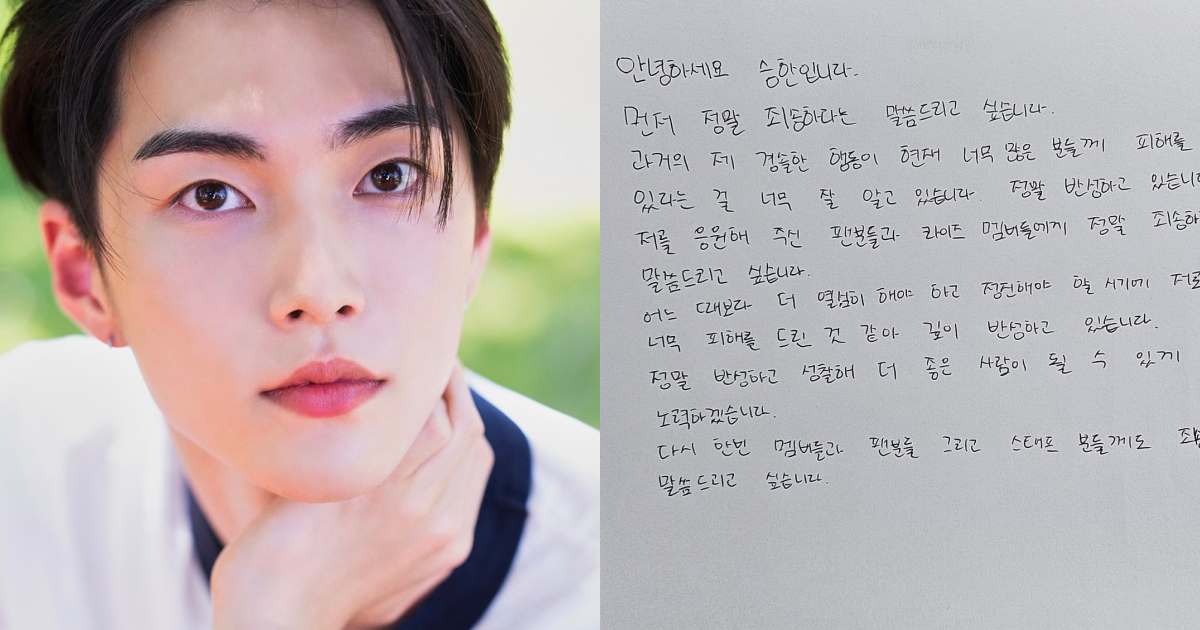 안녕하세요 승한입니다.
먼저 정말 죄송하다는 말씀드리고 싶습니다.
과거의 제 경솔한 행동이 현재 너무 많은 분들께 피해를
있다라는 걸 너무 잘 알고 있습니다. 정말 반성하고
저를 응원해 주신 팬분들과 라이즈 멤버들에게 정말
말씀드리고 싶습니다.
어느 때보다 더 열심히 해야 하고 정진해야 할 시기에
너무 피해를 드린 것 같아 깊이 반성하고 있습니다.
정말 반성하고 성찰해 더 좋은 사람이 될 수 있게
노력하겠습니다.
다시 한번 멤버들과 팬분들 그리고 스태프 분들께도
말씀드리고 싶습니다.